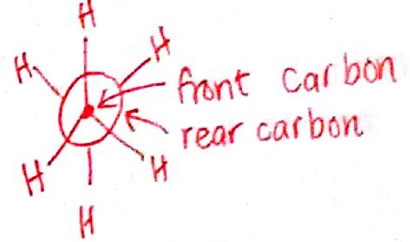 H
H
H
front carbon
rear carbon
H
H
H